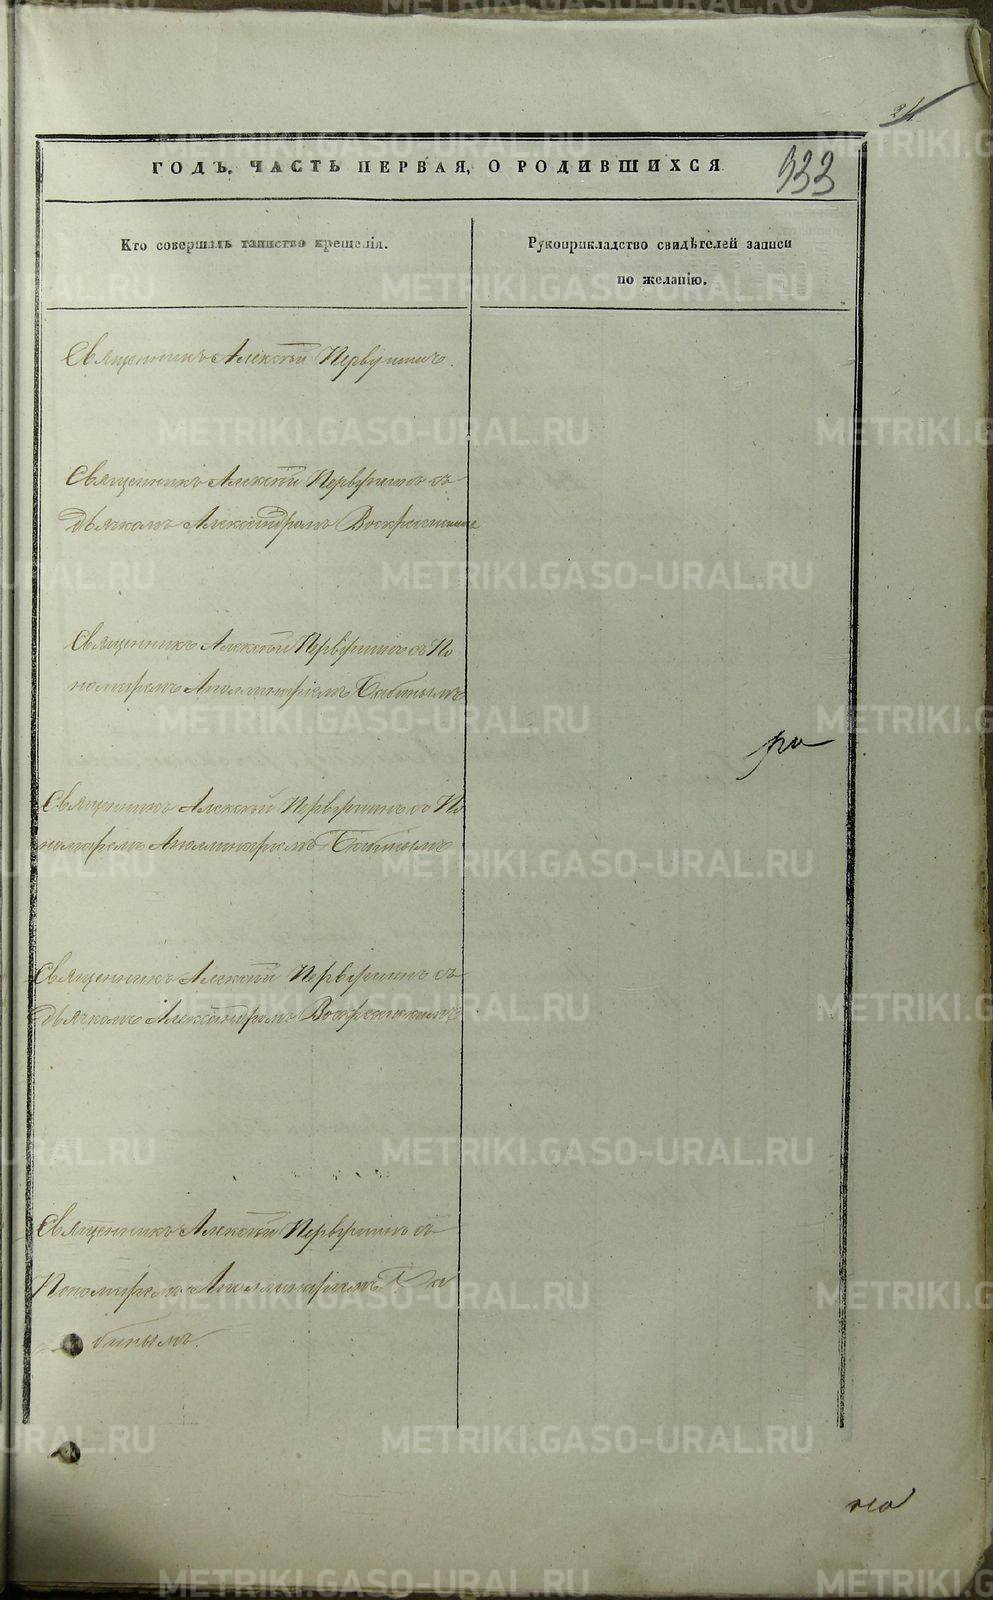 24
ГОДЪ, ЧАСТЬ ПЕРВАЯ, О РОДИВШИХСЯ
933
Кто совершалъ таинство крещенія.
Рукоприкладство свидѣтелей записи
по желанію.
Священникъ Алексѣй Первушинъ.
Священникъ Алексѣй Первушинъ съ
Дьячкомъ Александромъ Воскресенским
Священникъ Алексѣй Первушинъ съ По
номаремъ Аполлинаріемъ Бабинымъ
Священникъ Алексѣй Первушинъ съ По
номаремъ Аполлинаріемъ Бабинымъ
Священникъ Алексѣй Первушинъ съ
Дьячкомъ Александромъ Воскресенскимъ
Священникъ Алексѣй Первушинъ съ
Пономаремъ Аполлинаріемъ Ба
бинымъ.
METRIKI.GASO-URAL.RU